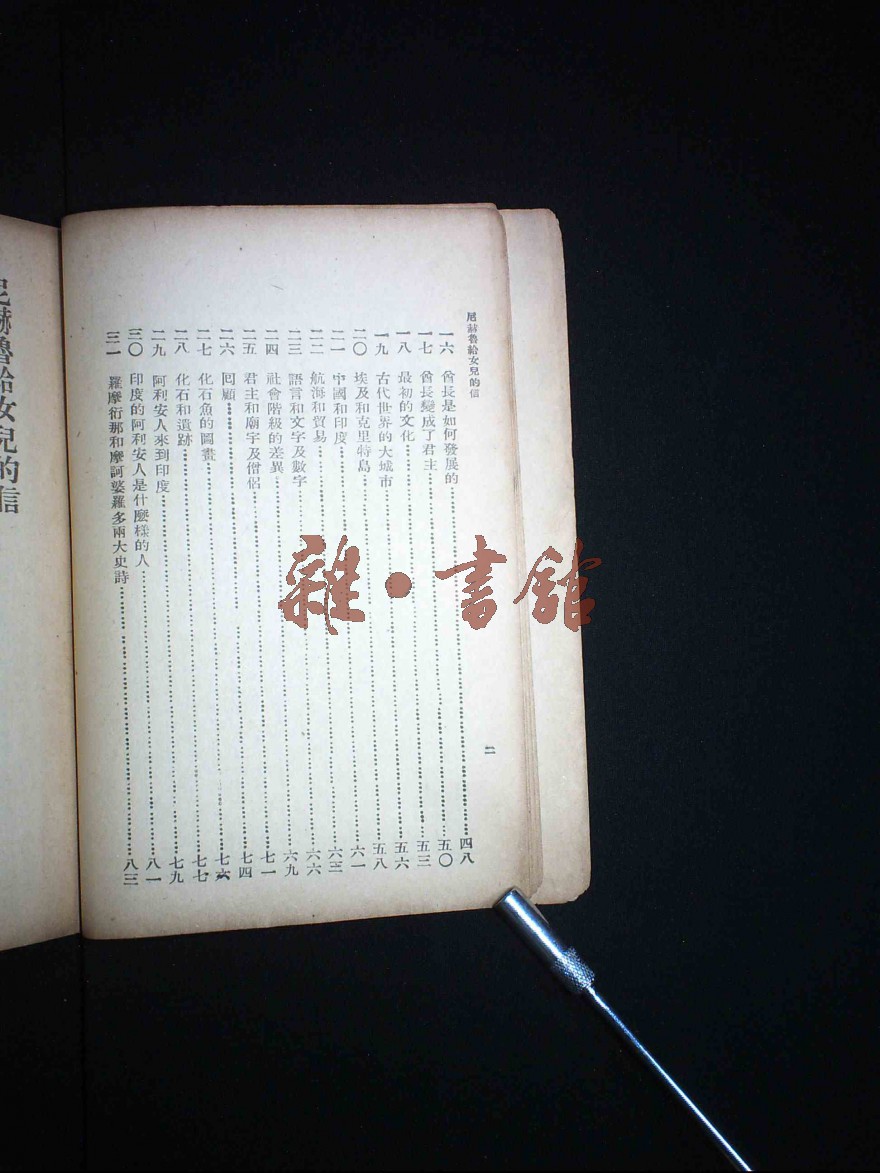 尼赫魯給女兒的信
一六 酋長是如何發展的……四八
一七 酋長變成了君主……五〇
一八 最初的文化……五三
一九 古代世界的大城市……五六
二〇 埃及和克里特島……五八
二一 中國和印度……六一
二二 航海和貿易……六三
二三 語言和文字及數字……六六
二四 社會階級的差異……六九
二五 君主和廟宇及僧侶……七一
二六 回顧……七四
二七 化石魚的圖畫……七六
二八 化石和遺跡……七七
二九 阿利安人來到印度……七九
三〇 印度的阿利安人是什麼樣的人……八一
三一 羅摩衍那和摩訶婆羅多兩大史詩……八三
二
尼赫魯給女兒的信
雜·書館